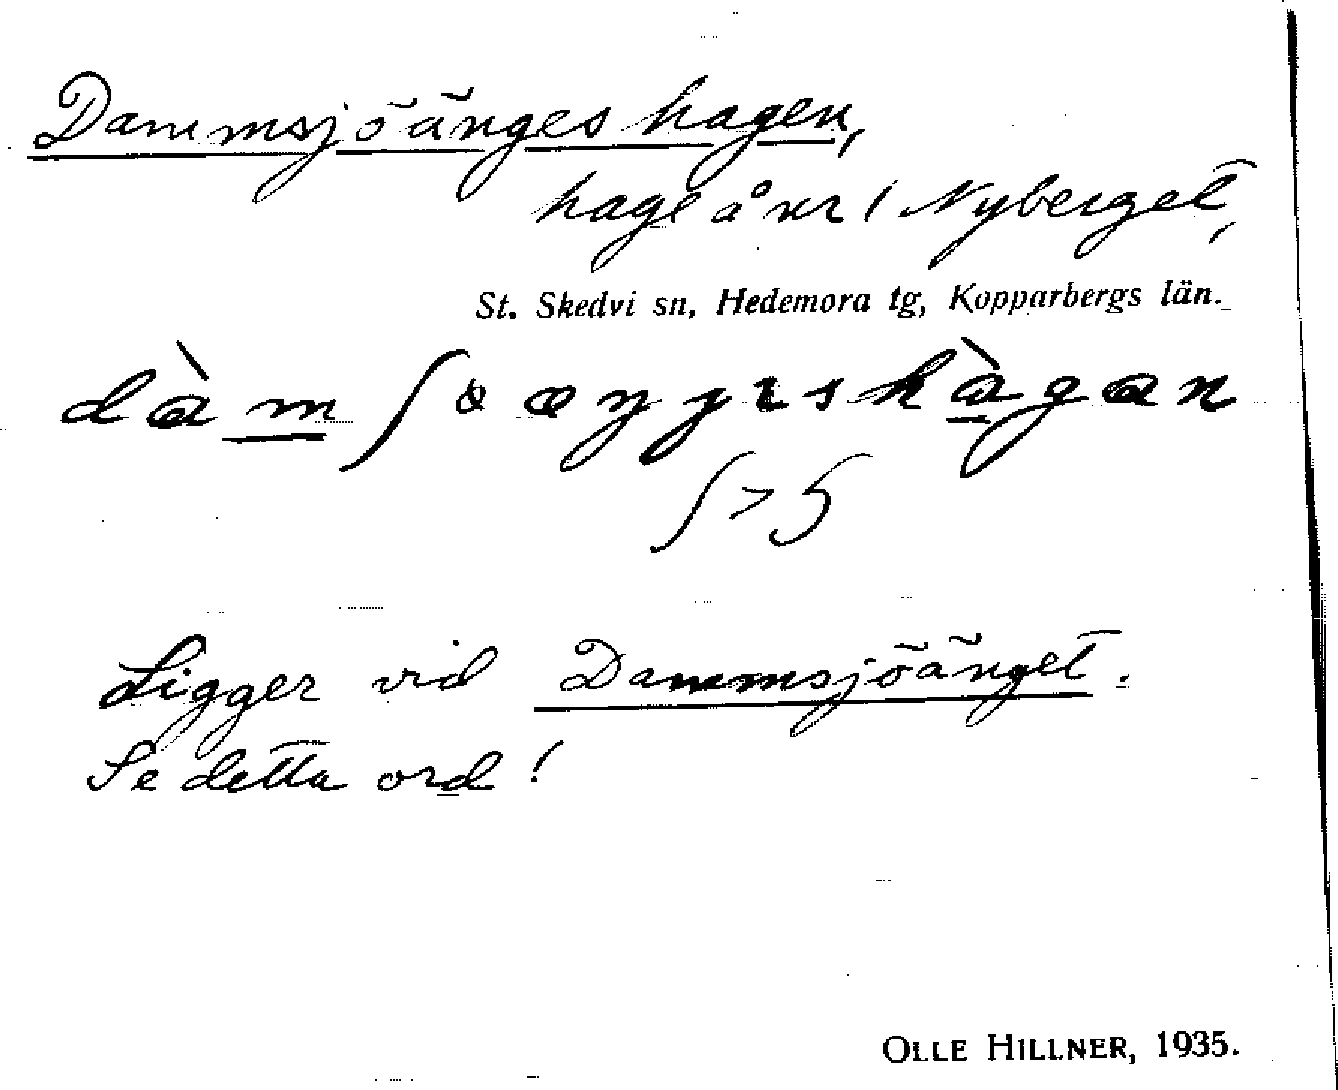 Dammsjöängeshagen,
hage å kr / Nyberget,
St. Skedvi sn, Hedemora tg, Kopparbergs län.
Ligger vid Dammsjöänget.
Se detta ord!
OLLE HILLNER, 1935.